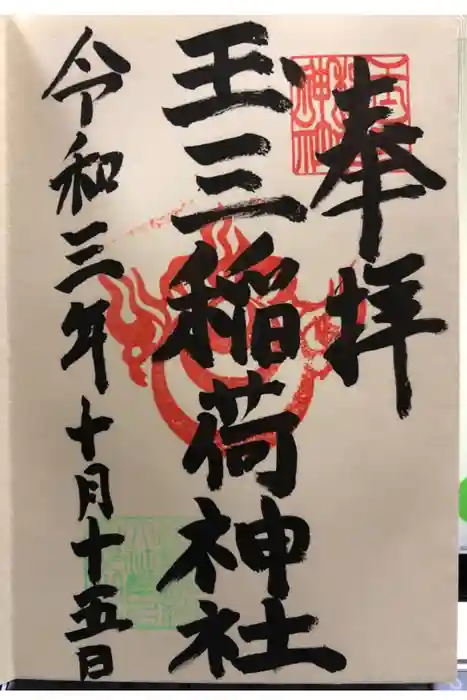 奉拝
玉三稲荷神社
令和三年十月十五日